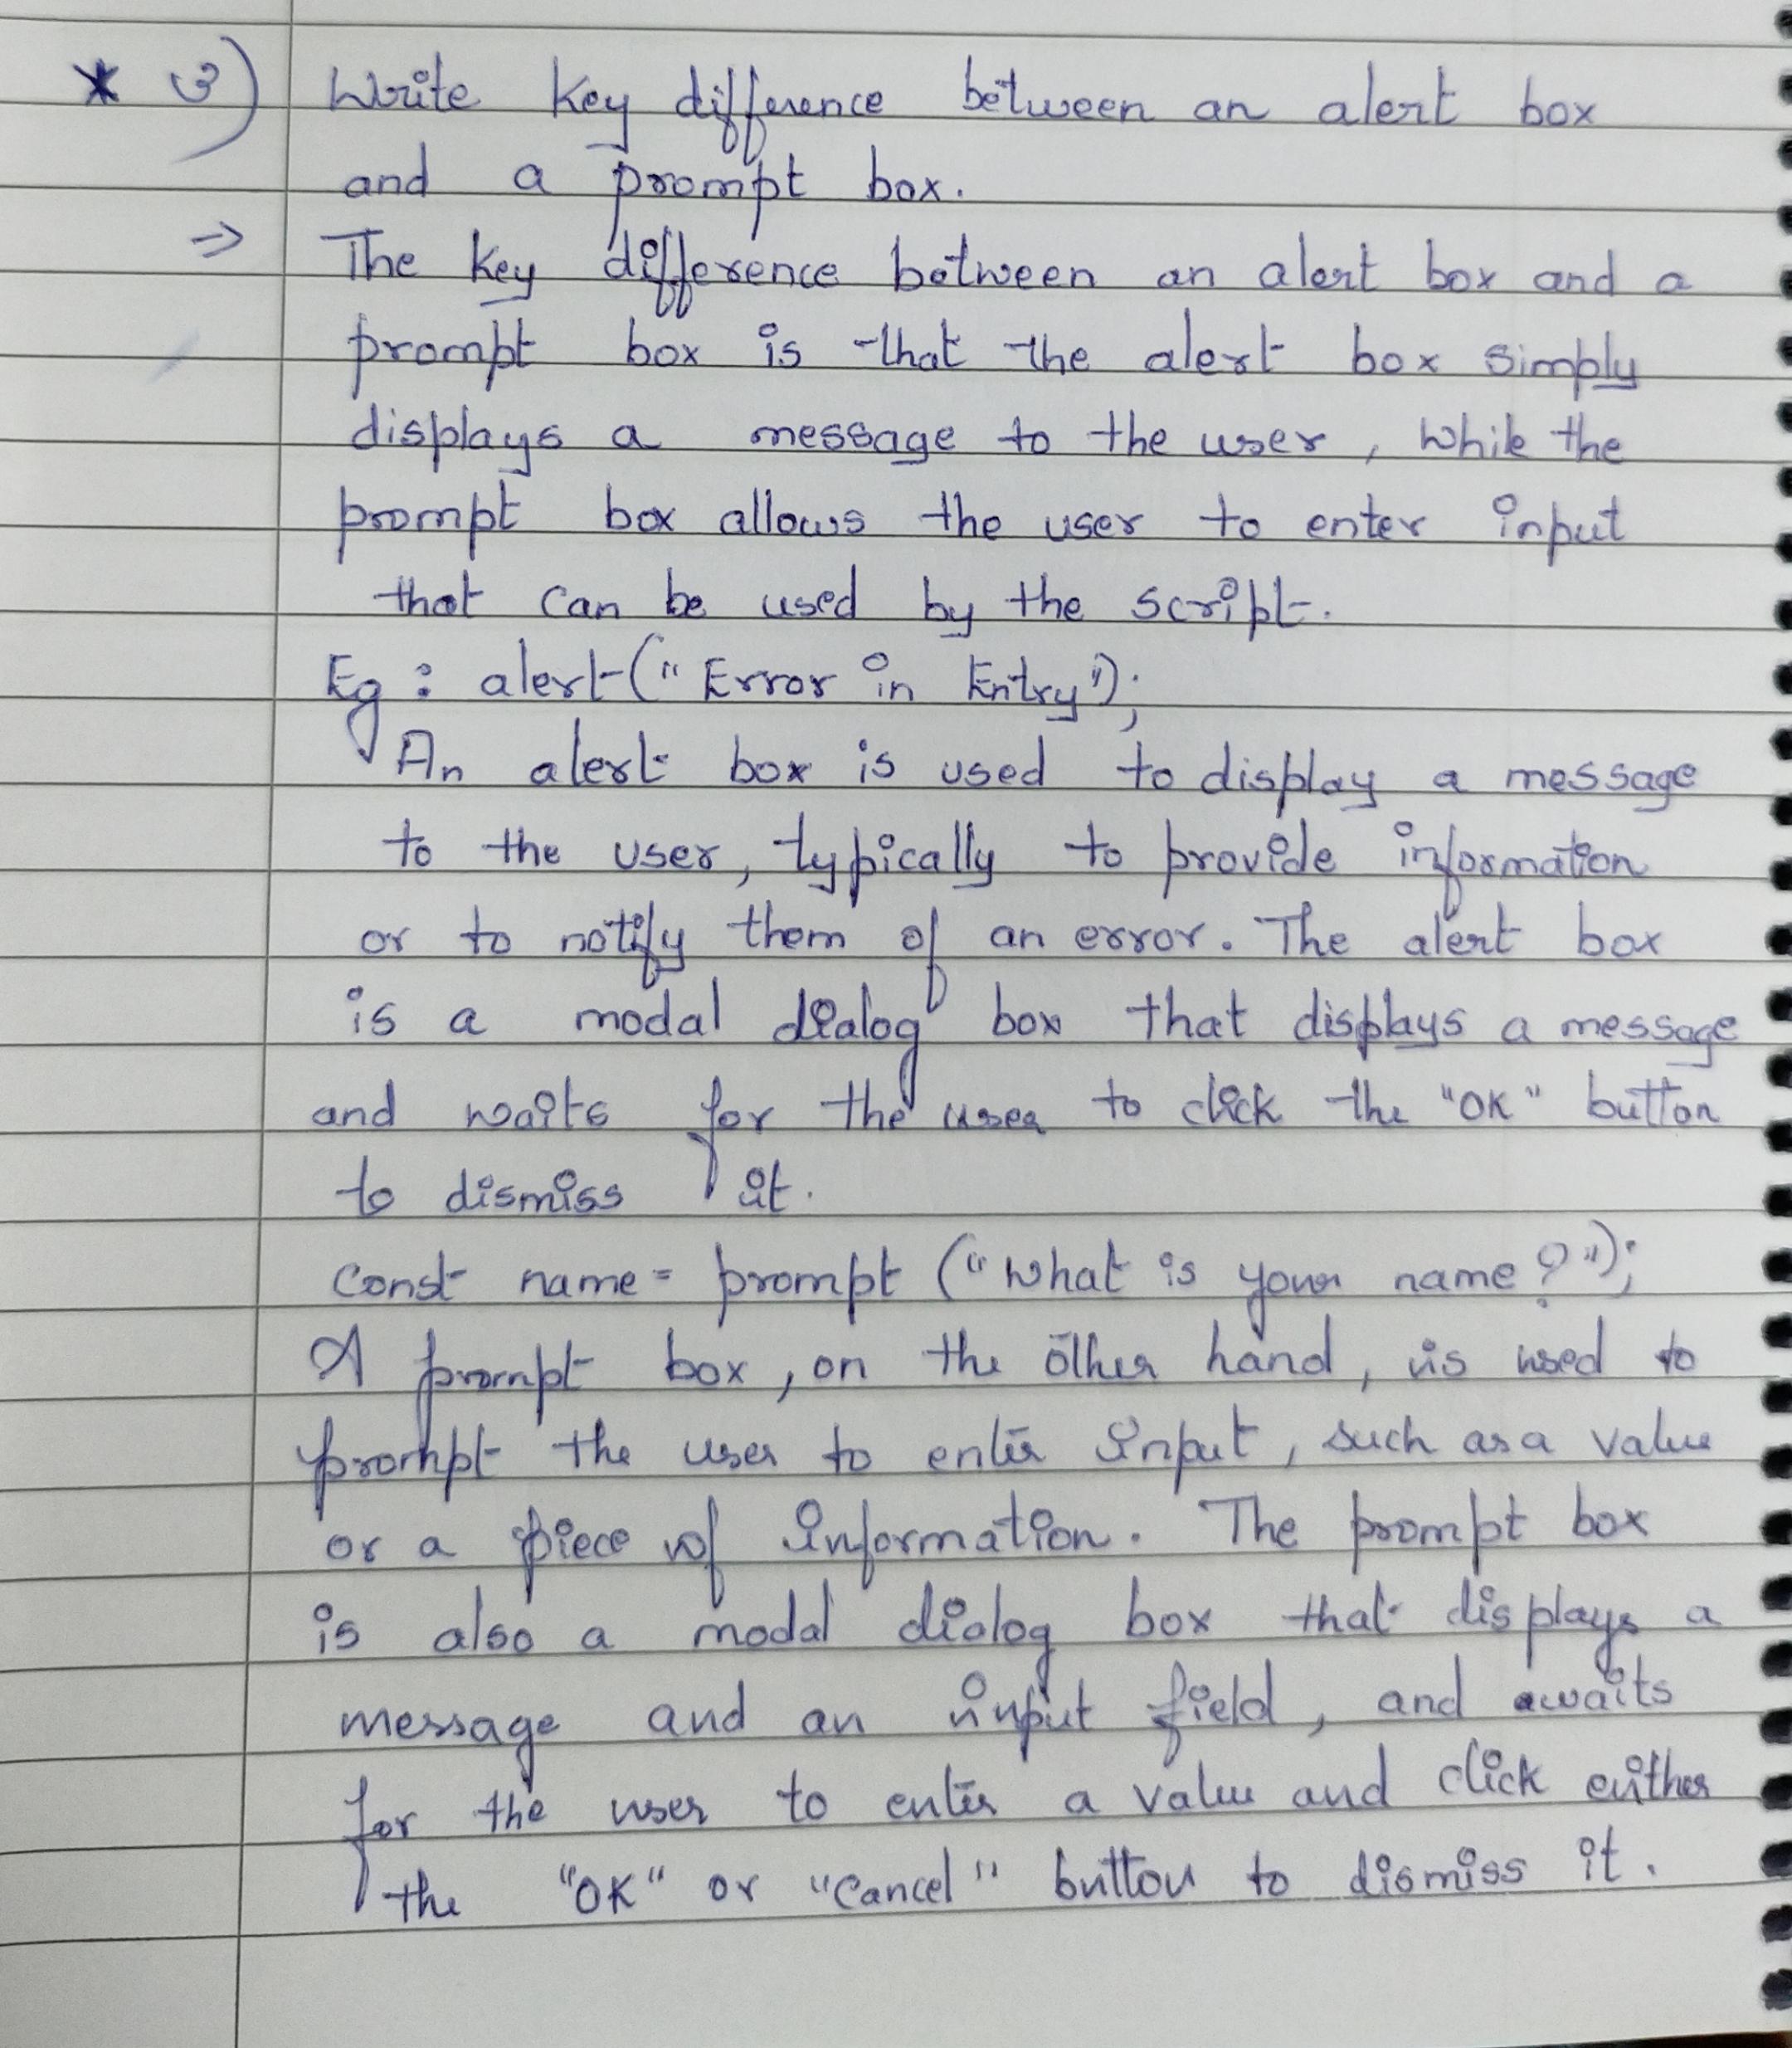 * 3) Write key difference between an alert box
and a prompt box.
⇒ The key difference between an alert box and a
prompt box is that the alert box simply
displays a message to the user, while the
prompt box allows the user to enter input
that can be used by the script.
Eg : alert("Error in Entry");
An alert box is used to display a message
to the user, typically to provide information
or to notify them of an error. The alert box
is a modal dialog box that displays a message
and waits for the user to click the "OK" button
to dismiss it.
Const name = prompt ("What is your name?");
A prompt box, on the other hand, is used to
prompt the user to enter input, such as a value
or a piece of information. The prompt box
is also a modal dialog box that displays a
message and an input field, and awaits
for the user to enter a value and click either
the "OK" or "Cancel" button to dismiss it.